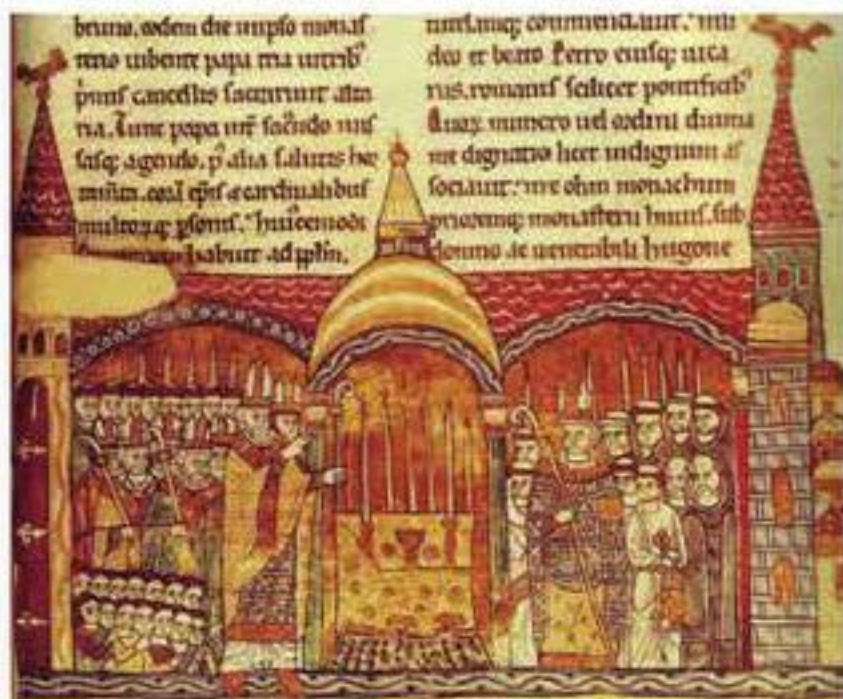 bruno, eodem die in ipso monas
terio iubente papa
punt cancellis sacrarunt alta
ria. Tunc papa int sacrando mis
sasq; agendo, p alia salutis ho
coram epis & cardinalibus
multorq; psonis, huiuscemodi
habuit ad pplm.
deo et beato Petro eiusq; uica
riis, romanis scilicet pontificib
Quoꝝ numero uel ordini diuina
me dignatio licet indignum as
sociauit; me olim monachum
prioremq; monasterii huius, sub
domno ac uenerabili hugone